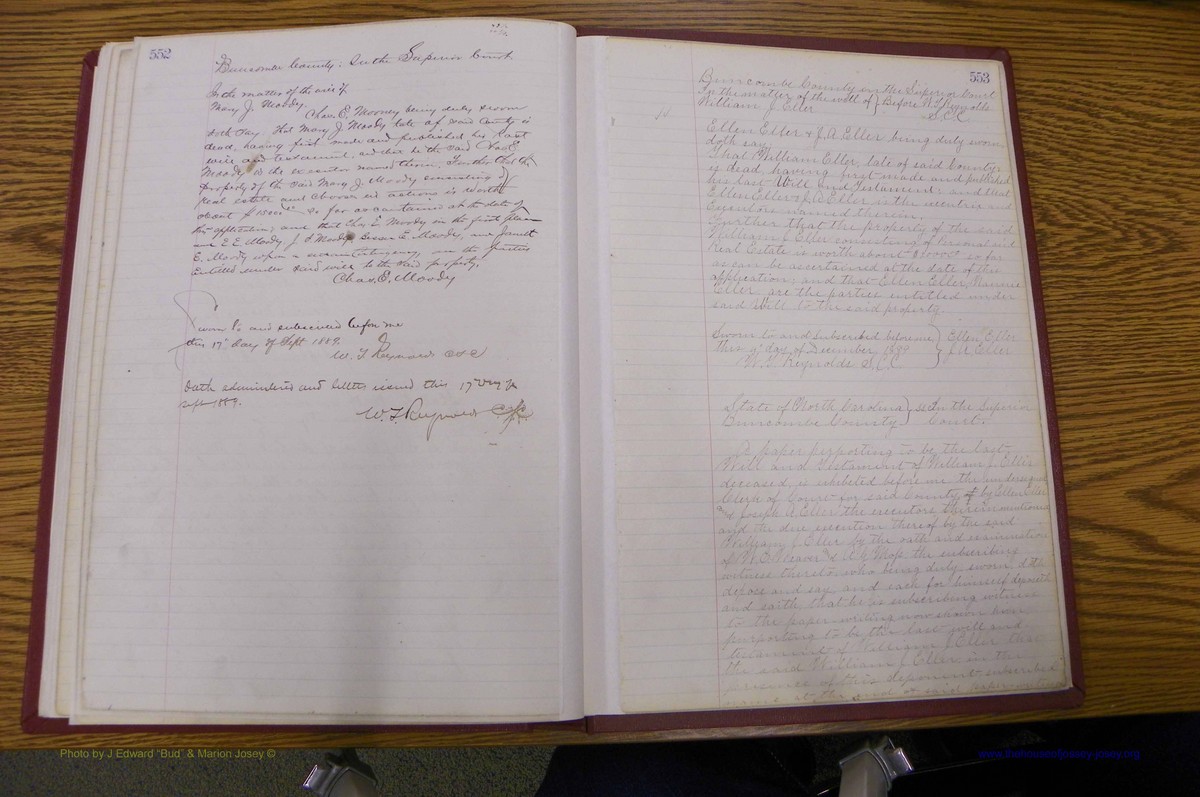 552
Buncombe County: In the Superior Court
In the matter of the will of
Mary J. Moody
Chas. E. Mooney being duly sworn
doth say, that Mary J. Moody late of said County is
dead, having first made and published her Last
will and testament, and that he the said Chas E
Moody is the executor named therein. Further that the
property of the said Mary J. Moody consisting of
real estate and choses in actions is worth
about $ so far as ascertained at the date of
this application; and that Chas E. Moody in the first place
and E E. Moody J. F Moody Bessie E. Moody, and
E. Moody upon a contingency, are the parties
entitled under said will to the said property.
Chas. E. Moody
Sworn to and subscribed before me
this 17" day of Sept 1889.
W. T Reynolds CSC
Oath administered and letters issued this 17 Day of
Sept 1889.
W. T. Reynolds CSC
553
Buncombe County in the Superior Court
In the matter of the will of } Before W. T. Reynolds
William J. Eller S.C.C.
Ellen Eller & J. A Eller being duly sworn
doth say
That William Eller, late of said County
is dead, having first made and published
his last Will and Testament: and that
Ellen Eller & J. A. Eller is the executrix and
Executors named therein.
Further that the property of the said
William J. Eller consisting of Personal and
Real Estate is worth about so far
as can be ascertained at the date of this
application; and that Ellen Eller,
Eller are the parties entitled under
said will to the said property.
Sworn to and subscribed before me } Ellen Eller
this day of December 1889 } J. A. Eller
W. T. Reynolds S.C.C.
State of North Carolina } In the Superior
Buncombe County } Court.
A paper purporting to be the last
Will and Testament of William J. Eller
deceased, is exhibited before me the undersigned
Clerk of Court for said County by Ellen Eller
& Joseph A Eller the executors therein mentioned
and the due execution thereof by the said
William J. Eller by the oath and examination
of Weaver & the subscribing
witness thereto, who being duly sworn, doth
depose and say, and each for himself deposeth
and saith, that he is subscribing witness
to the paper writing now shown him
purporting to be the last will and
testament of William J. Eller that
the said William J. Eller in the
presence of this deponent subscribed
name at the end of said paper
Photo by J Edward "Bud" & Marion Josey ©
www.thehouseofjossey-josey.org